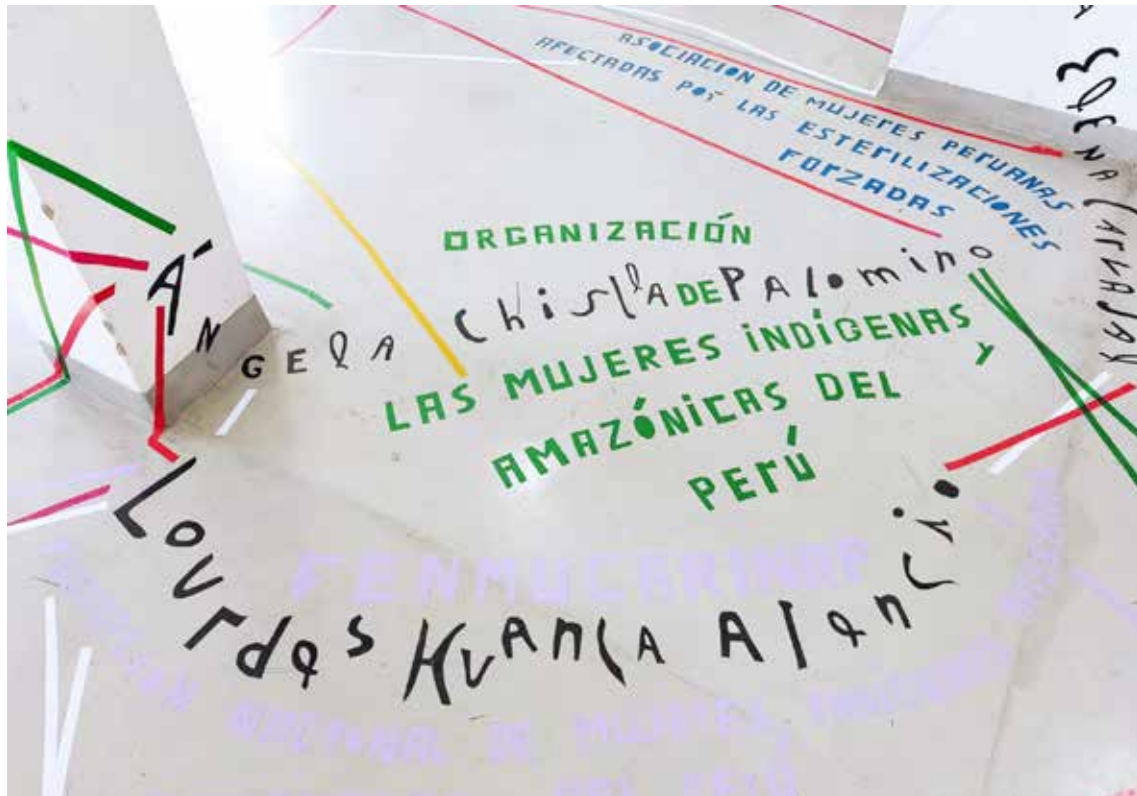 ASOCIACION DE MUJERES PERUANAS
AFECTADAS POR LAS ESTERILIZACIONES
FORZADAS
ELENA CARVAJAL
ORGANIZACIÓN
ÁNGELA CHISLLA DE PALOMINO
LAS MUJERES INDÍGENAS Y
AMAZÓNICAS DEL
PERÚ
FENMUCARINAP
Lourdes HUANCA Alencio
NACIONAL DE MUJERES